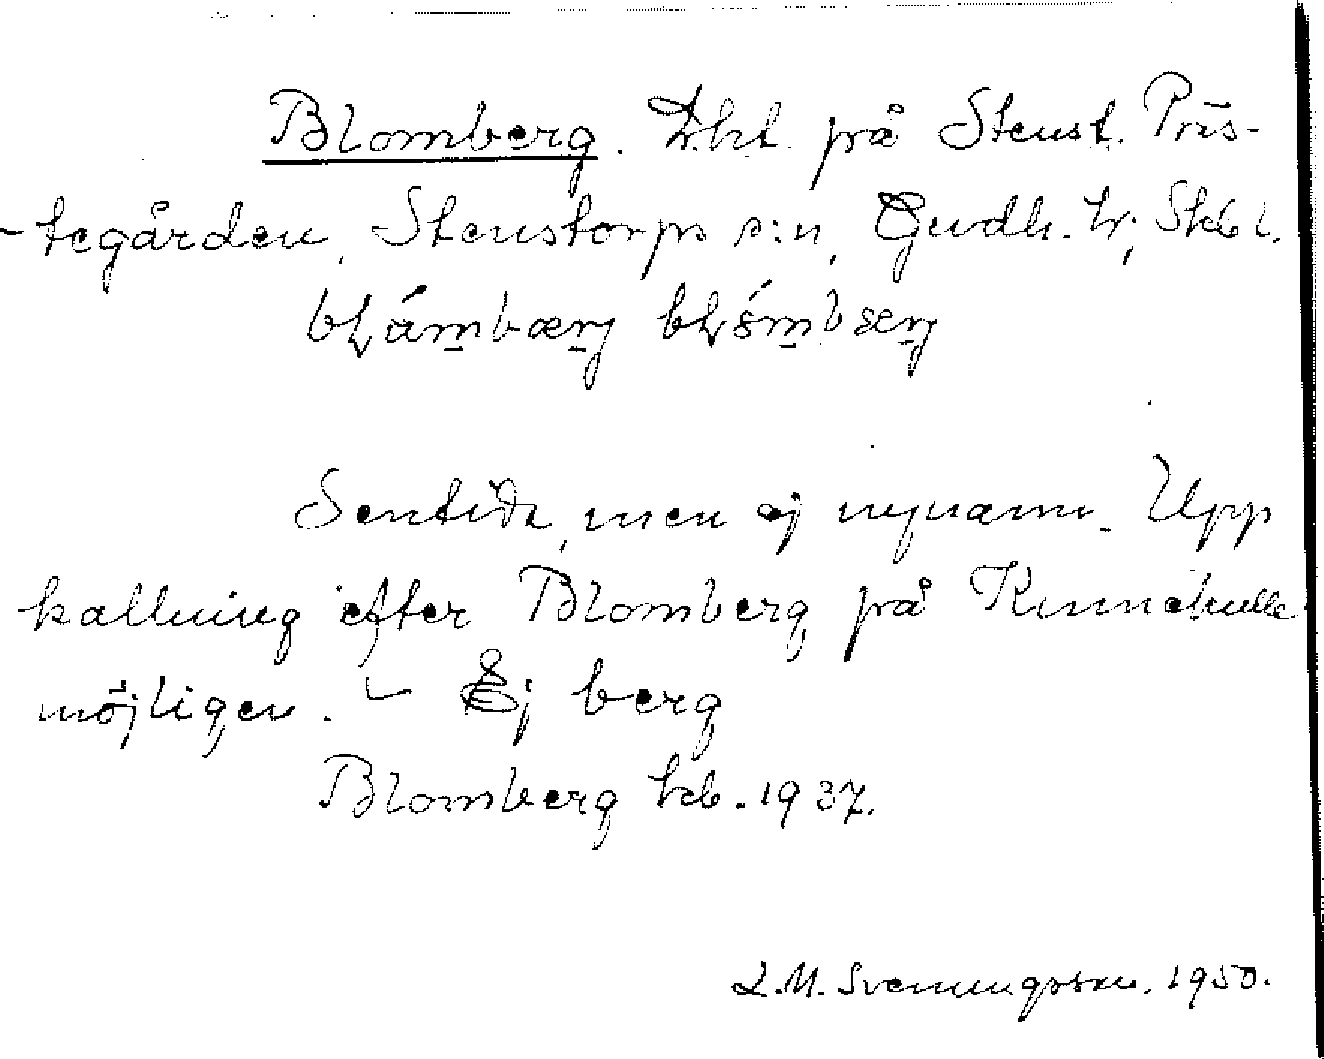 Blomberg. Lht på Stenst. Präs-
-tegården, Stenstorps s:n, Gudh. hr, Skbl.
Sentida, men ej nynamn. Upp
kallning efter Blomberg på Kinnekulle
möjligen. - Ej berg
Blomberg kb. 1937.
L.M. Svenungsson. 1950.